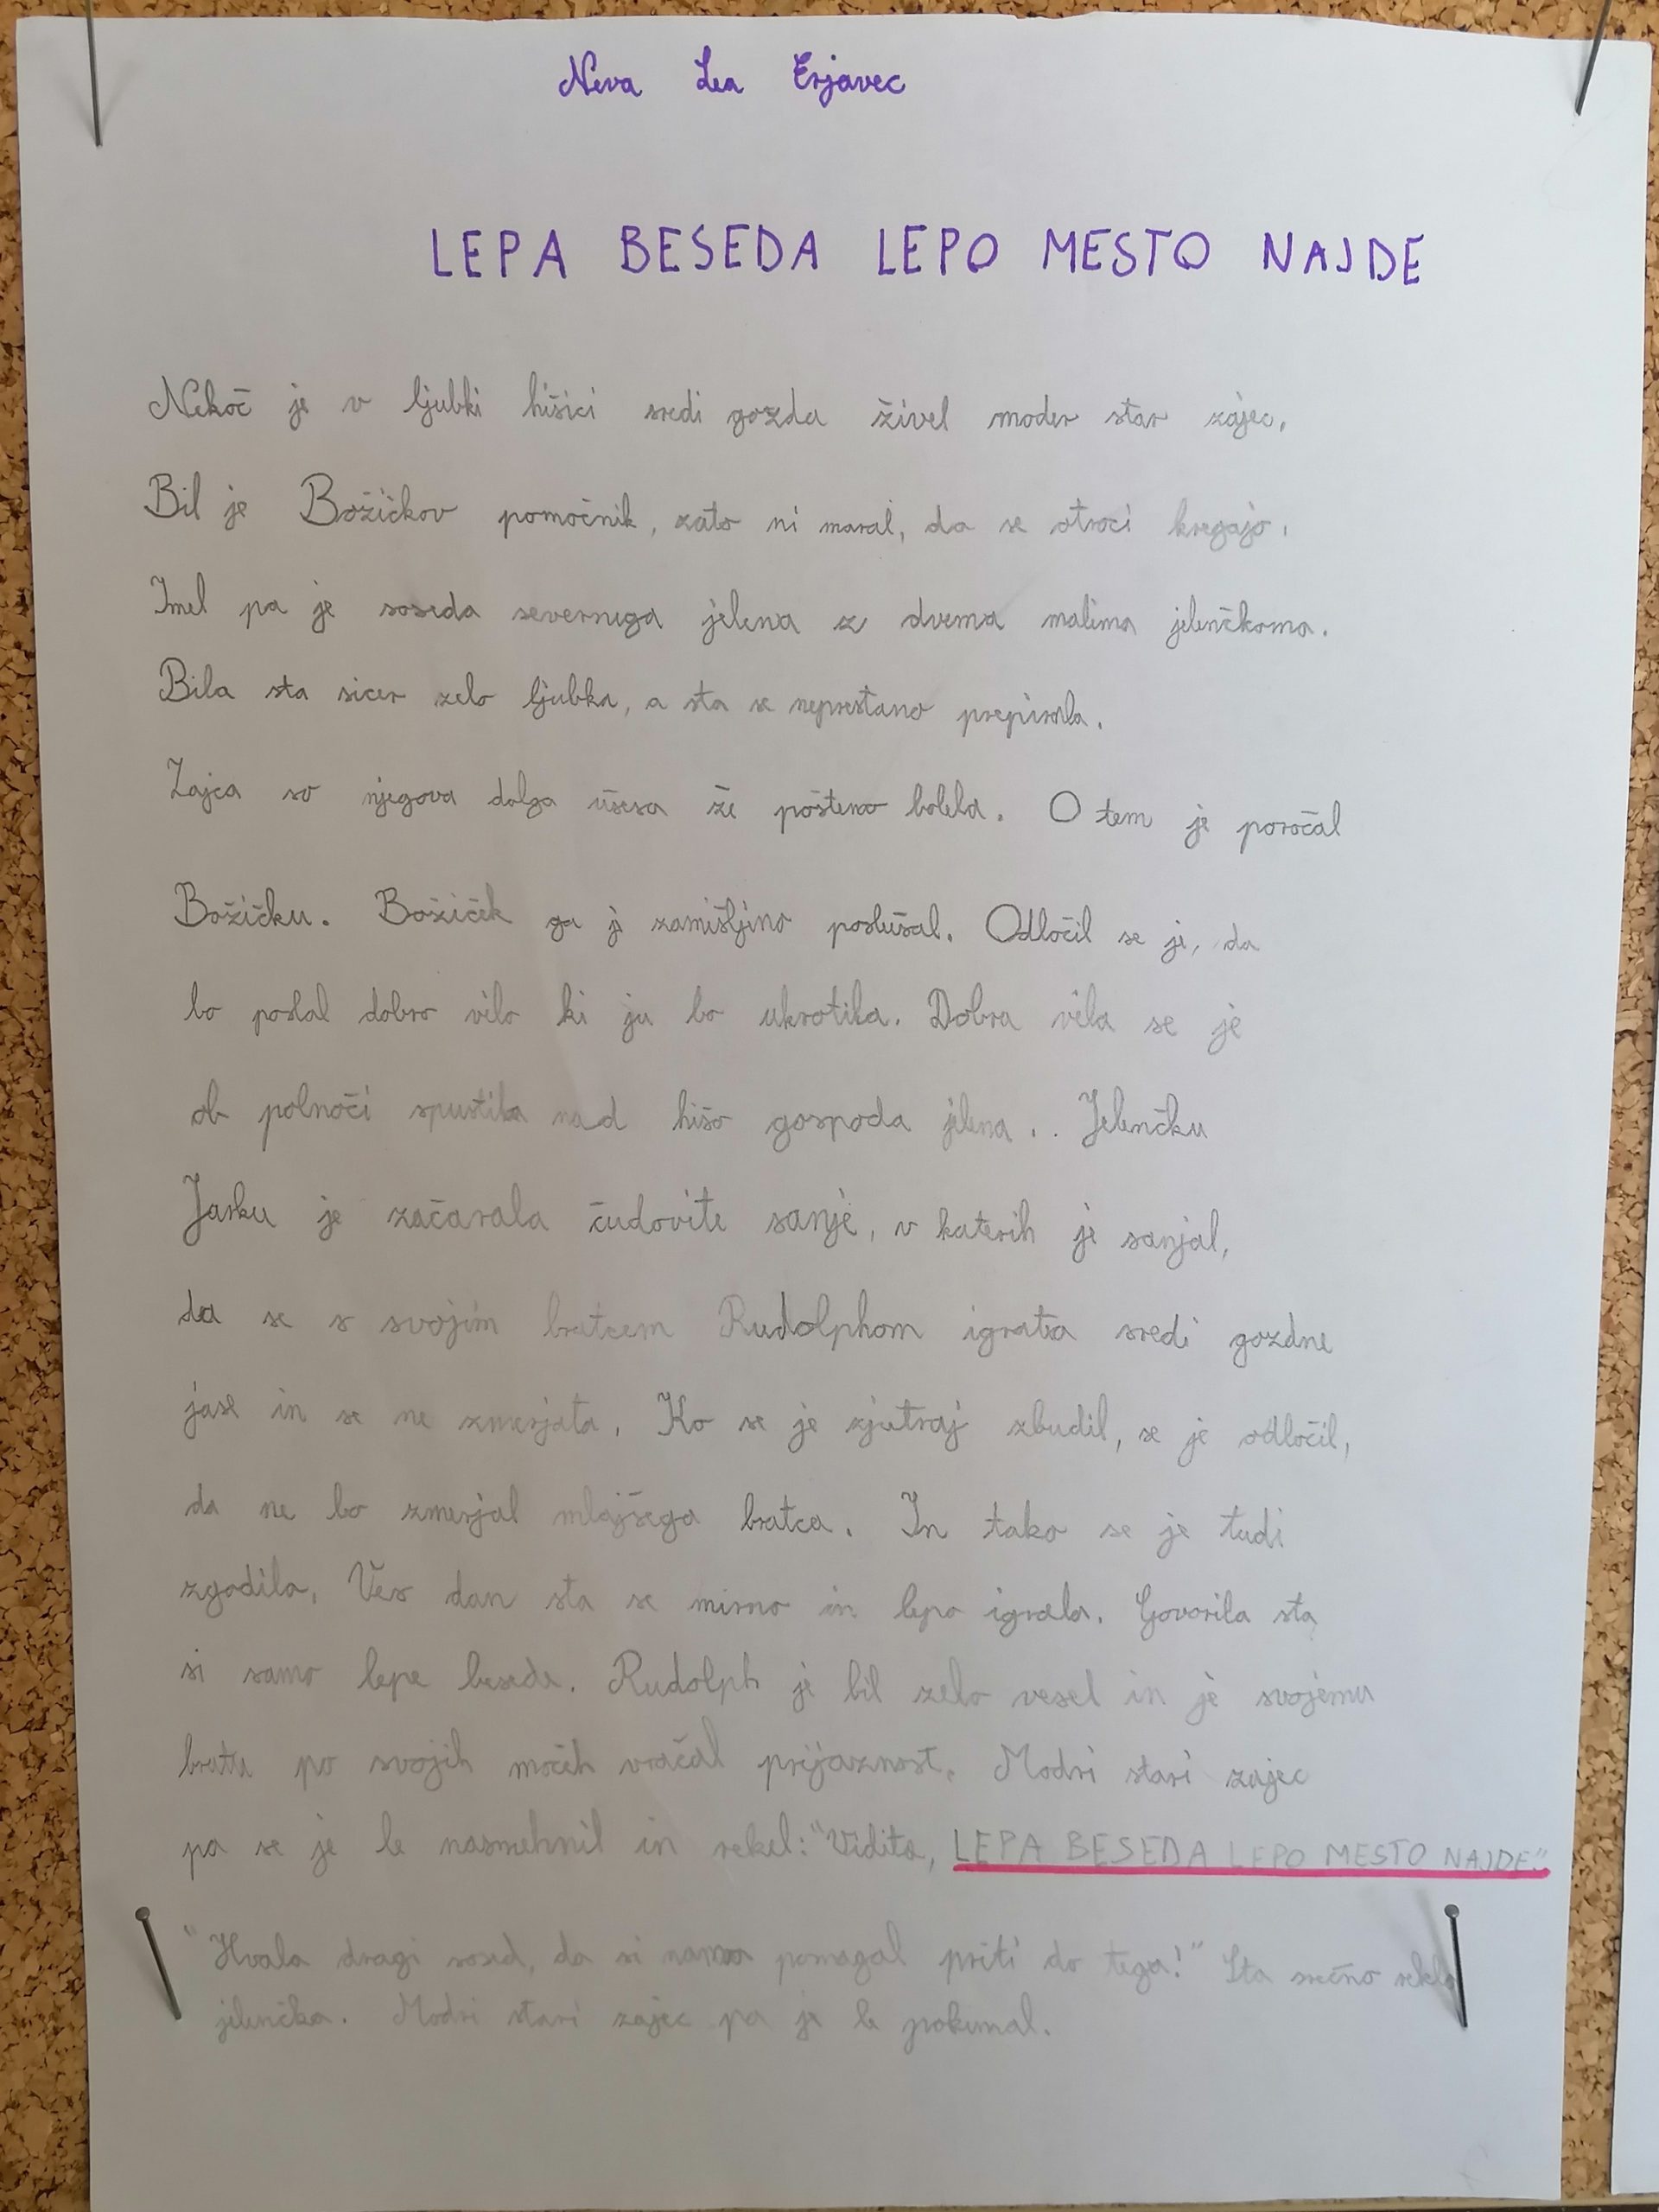 Neva Lea Erjavec
LEPA BESEDA LEPO MESTO NAJDE
Nekoč je v ljubki hišici sredi gozda živel moder star zajec.
Bil je Božičkov pomočnik, zato ni maral, da se otroci kregajo.
Imel pa je soseda severnega jelena z dvema malima jelenčkoma.
Bila sta sicer zelo ljubka, a sta se neprestano prepirala.
Zajca so njegova dolga ušesa že pošteno bolela. O tem je poročal
Božičku. Božiček ga je zamišljeno poslušal. Odločil se je, da
bo poslal dobro vilo ki ju bo ukrotila. Dobra vila se je
ob polnoči spustila nad hišo gospoda jelena.. Jelenčku
Jarku je začarala čudovite sanje, v katerih je sanjal,
da se s svojim bratcem Rudolphom igrata sredi gozdne
jase in se ne zmerjata. Ko se je zjutraj zbudil, se je odločil,
da ne bo zmerjal mlajšega bratca. In tako se je tudi
zgodila. Ves dan sta se mirno in lepo igrala. Govorila sta
si samo lepe besede. Rudolph je bil zelo vesel in je svojemu
bratu po svojih močeh vračal prijaznost. Modri stari zajec
pa se je le nasmehnil in rekel: "Vidita, LEPA BESEDA LEPO MESTO NAJDE."
"Hvala dragi sosed, da si nama pomagal priti do tega!" Sta srečno rekla
jelenčka. Modri stari zajec pa je le pokimal.